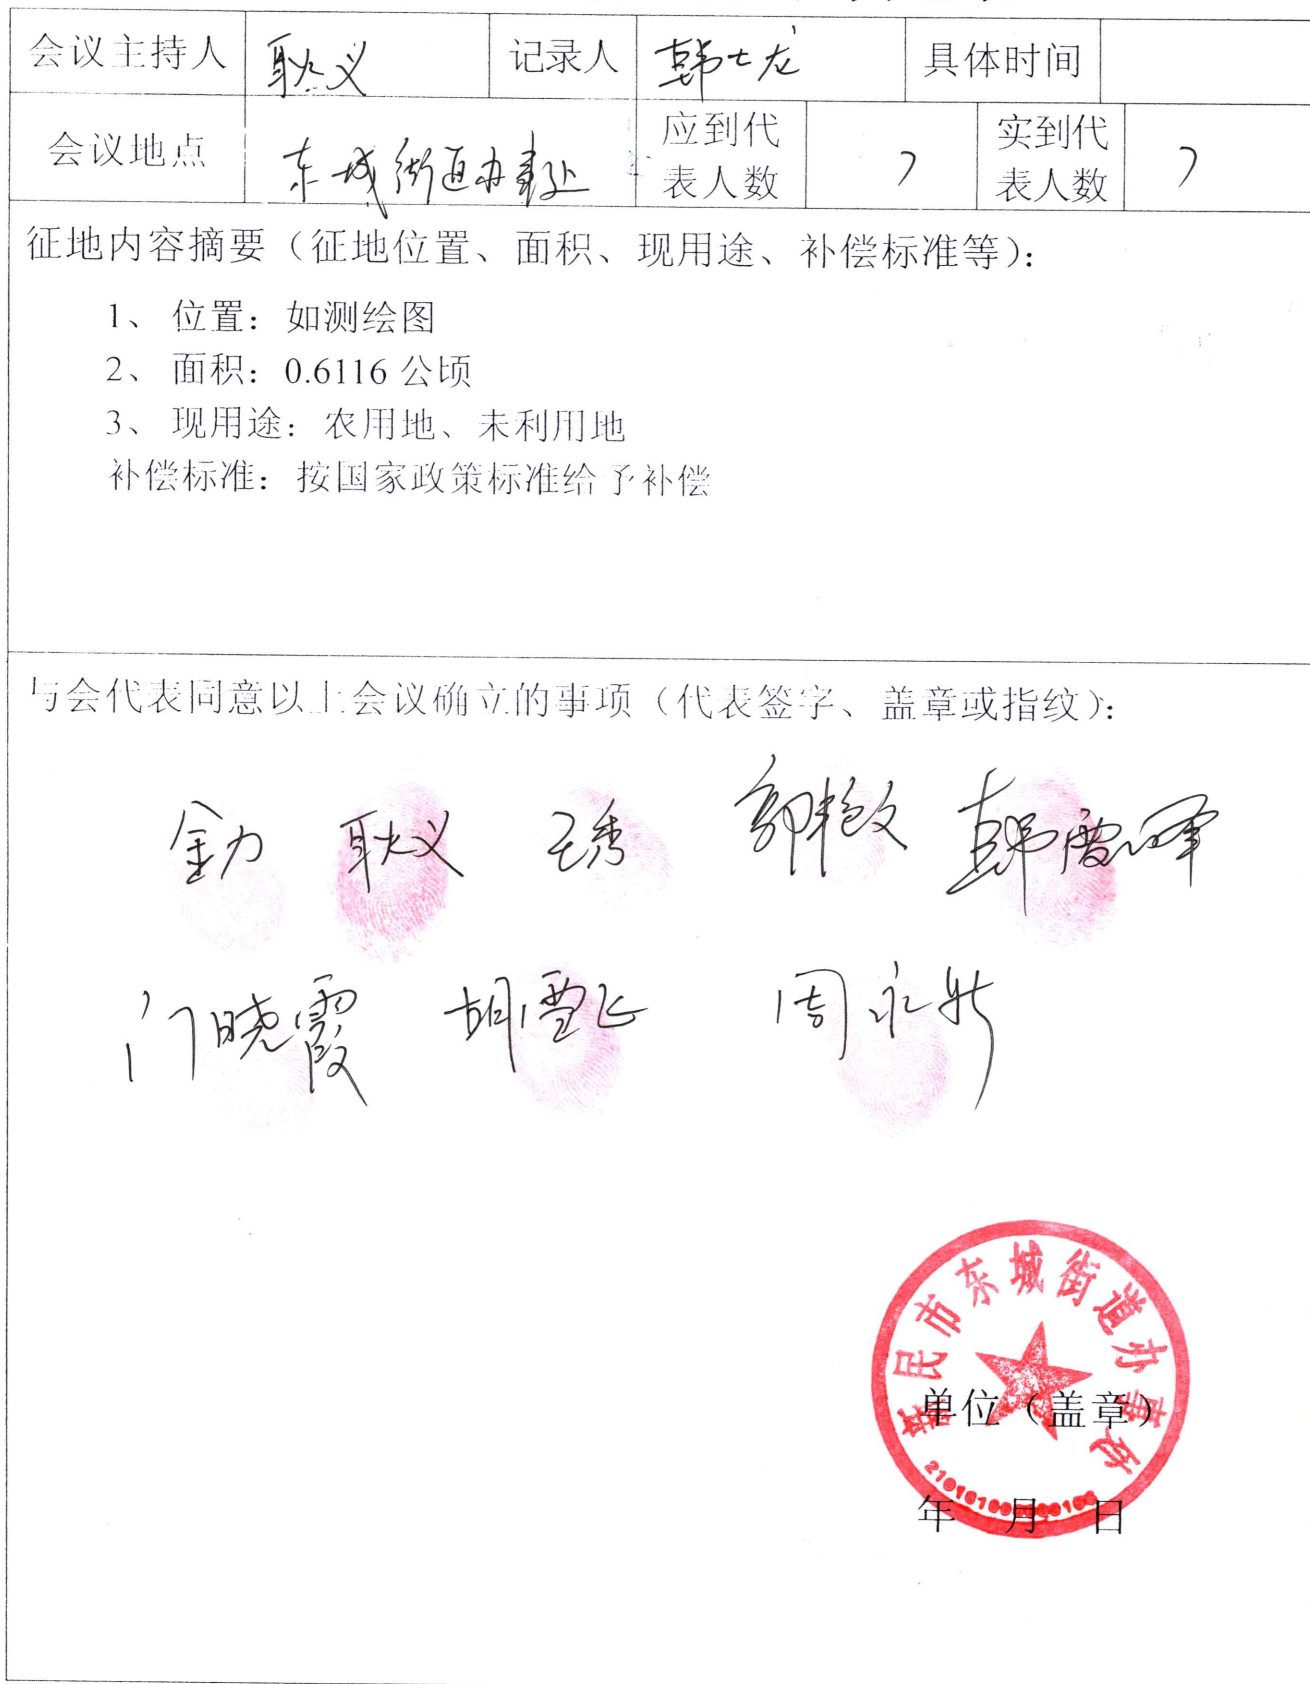 会议主持人 耿义 记录人 韩七龙 具体时间
会议地点 东城街道办事处 应到代表人数 7 实到代表人数 7
征地内容摘要（征地位置、面积、现用途、补偿标准等）：
1、 位置：如测绘图
2、 面积：0.6116 公顷
3、 现用途：农用地、未利用地
补偿标准：按国家政策标准给予补偿
与会代表同意以上会议确立的事项（代表签字、盖章或指纹）：
金力 耿义 王秀 郭艳文 韩雪峰
门晓霞 胡雪飞 周永斌
新民市东城街道办事处
单位（盖章）
年 月 日